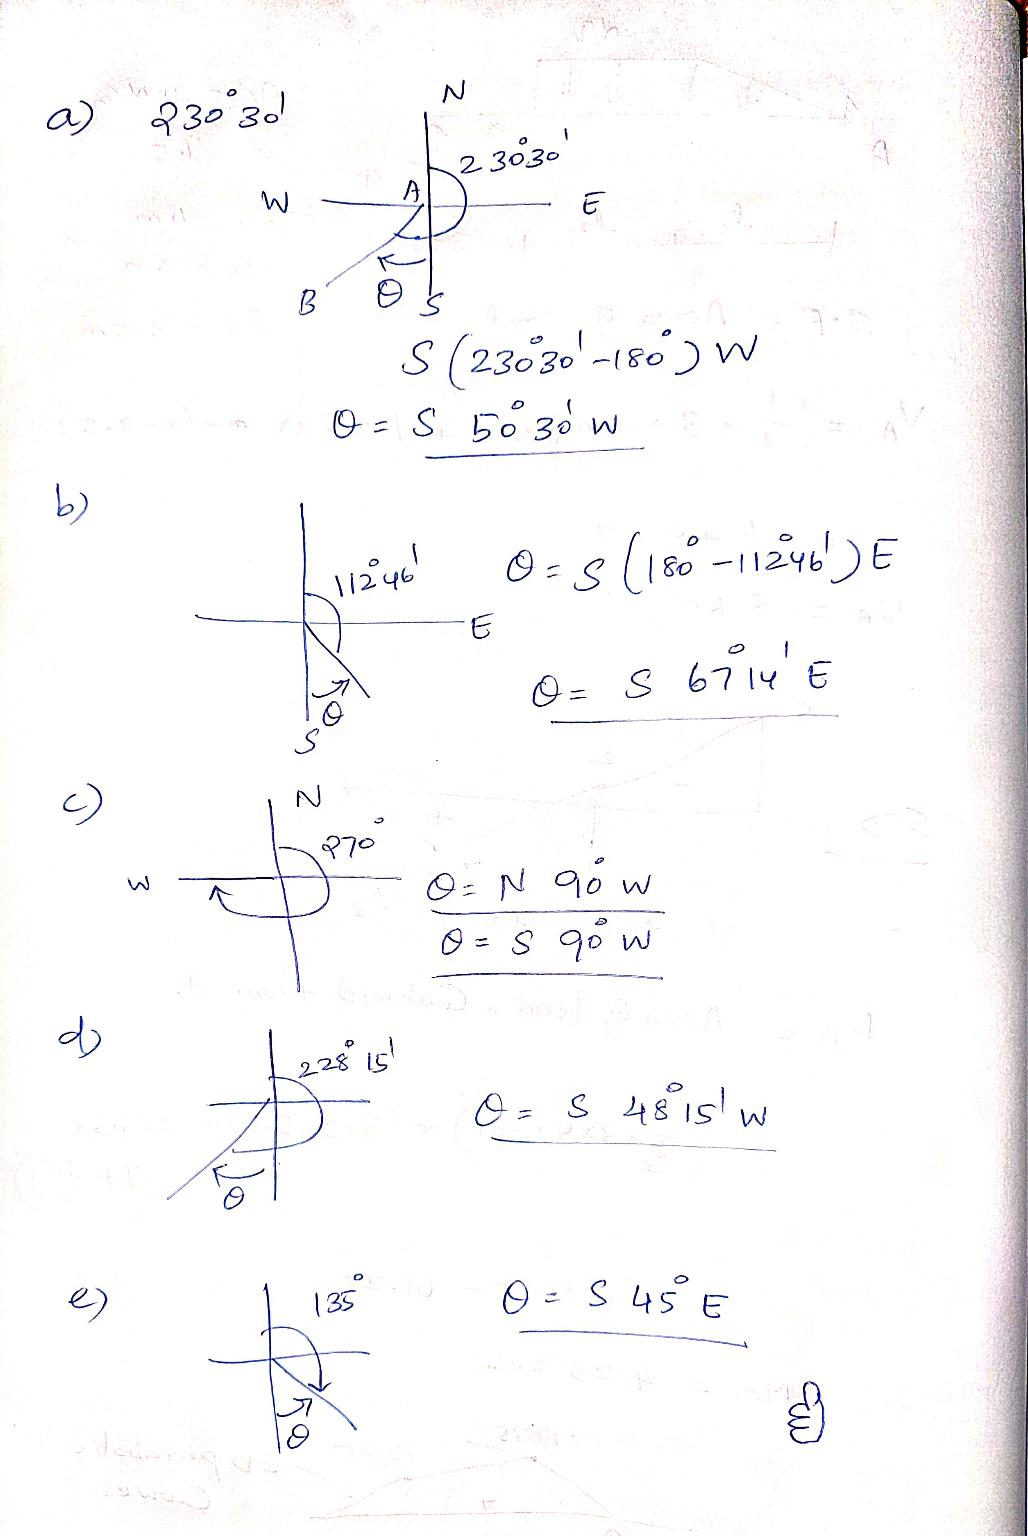 a) 230°30'
N
230°30'
W A E
B θ S
S (230°30' - 180°) W
θ = S 50°30' W
b)
112°46' θ = S (180° - 112°46') E
E
θ = S 67°14' E
θ
S
c) N
270°
W θ = N 90° W
θ = S 90° W
d) 228°15'
θ = S 48°15' W
θ
e) 135° θ = S 45° E
θ